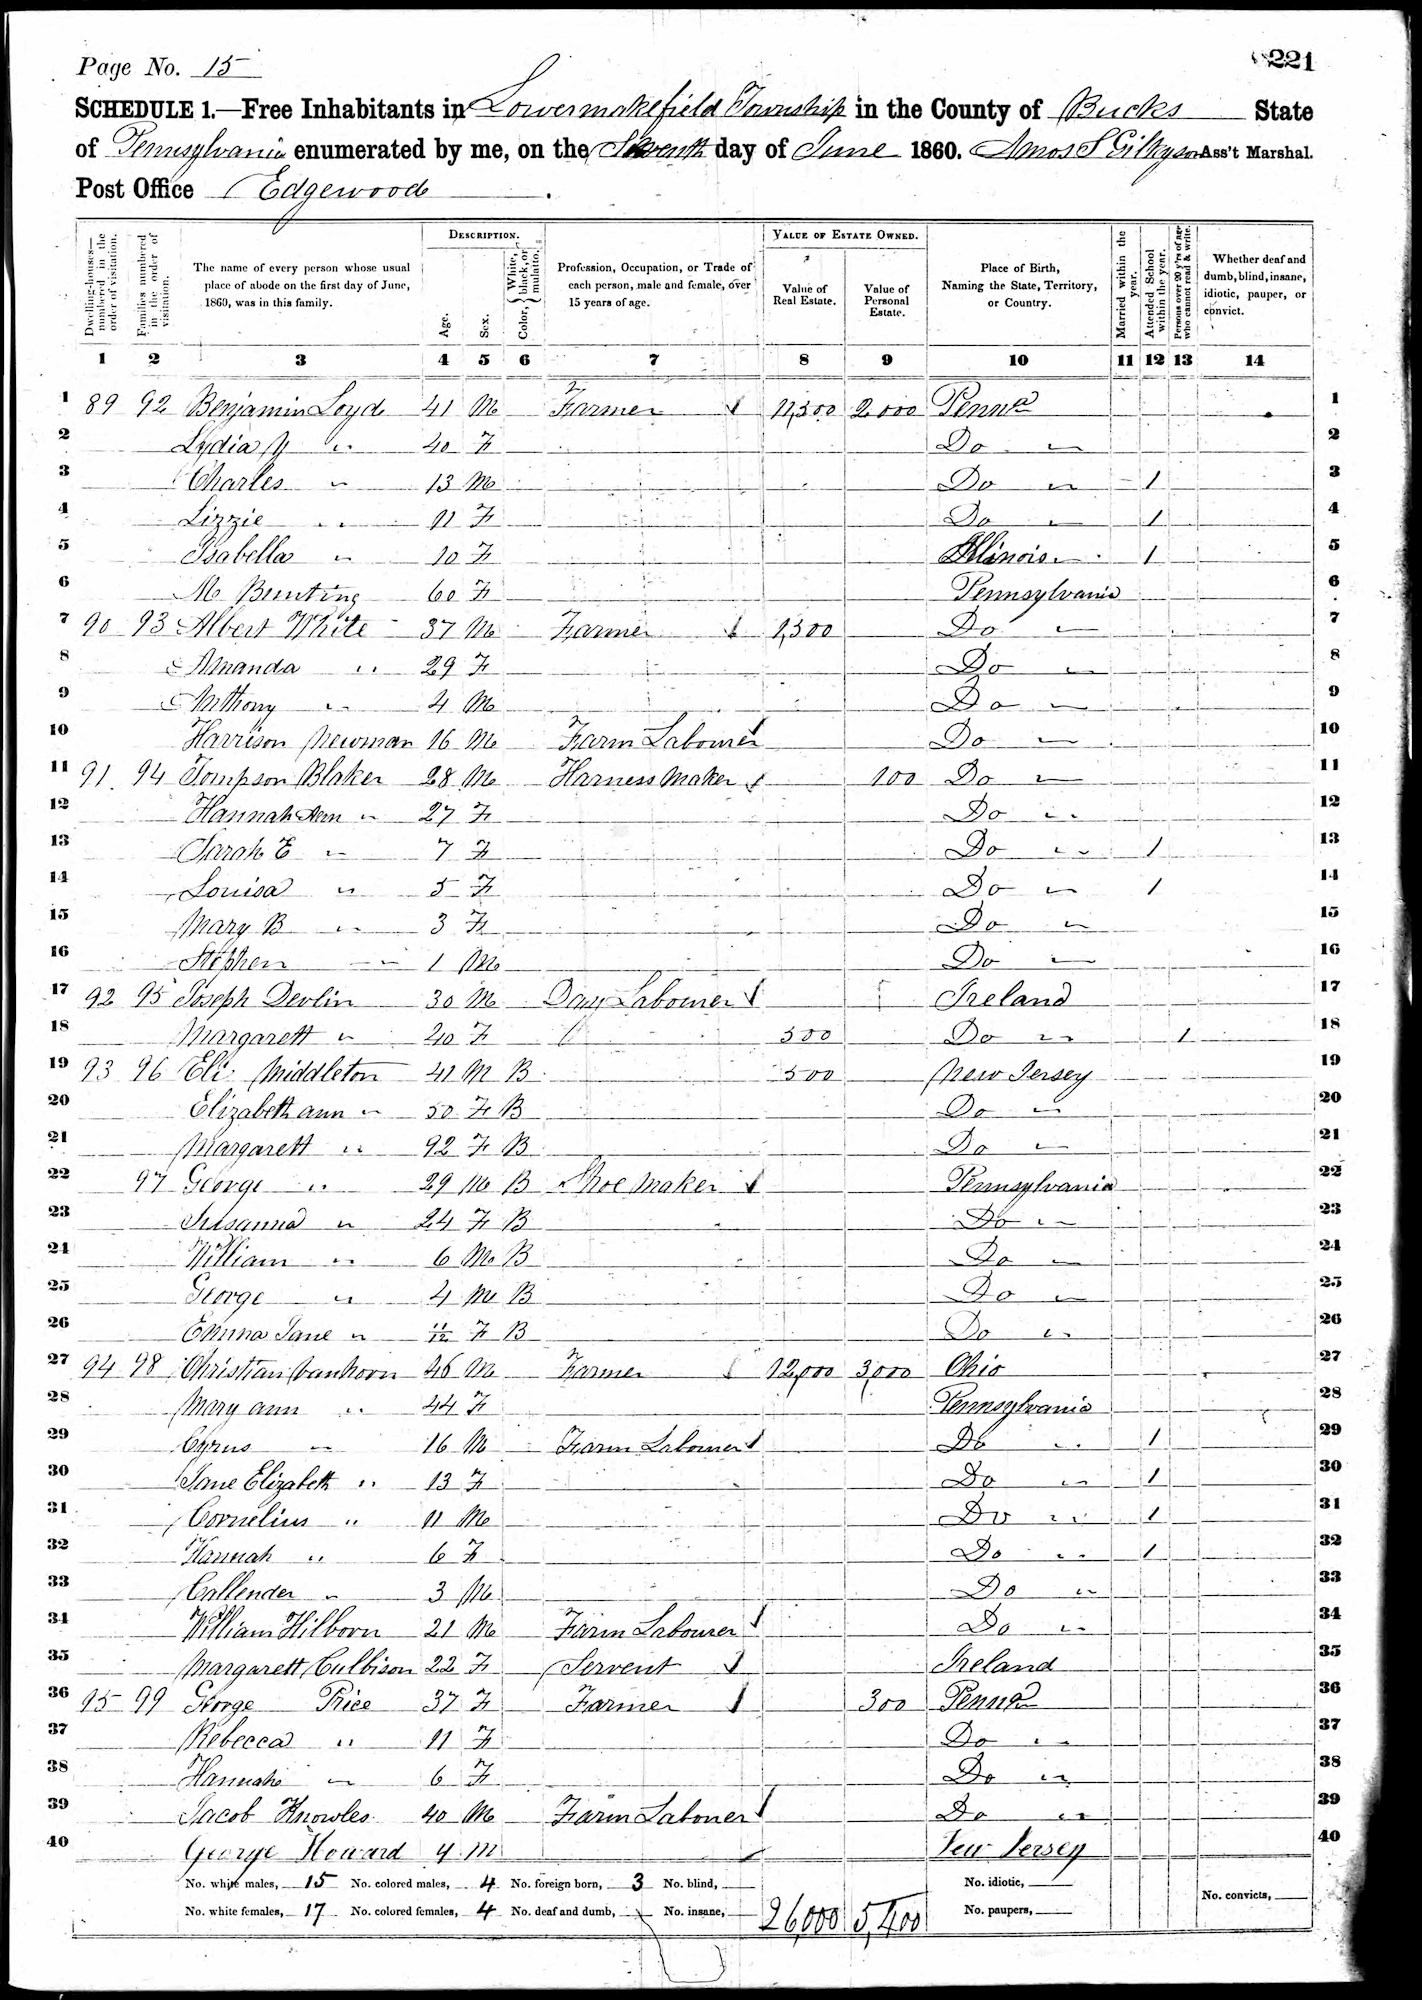 Page No. 15
221
SCHEDULE 1.—Free Inhabitants in Lowermakefield Township in the County of Bucks State
of Pennsylvania enumerated by me, on the Seventh day of June 1860. Amos S Gilkyson Ass't Marshal.
Post Office Edgewood.
Dwelling-houses—numbered in the order of visitation.
Families numbered in the order of visitation.
The name of every person whose usual place of abode on the first day of June, 1860, was in this family.
DESCRIPTION.
Age.
Sex.
Color, { White, black, or mulatto.
Profession, Occupation, or Trade of each person, male and female, over 15 years of age.
VALUE OF ESTATE OWNED.
Value of Real Estate.
Value of Personal Estate.
Place of Birth, Naming the State, Territory, or Country.
Married within the year.
Attended School within the year.
Persons over 20 y'rs of age who cannot read & write.
Whether deaf and dumb, blind, insane, idiotic, pauper, or convict.
1 2 3 4 5 6 7 8 9 10 11 12 13 14
1 89 92 Benjamin Loyd 41 M Farmer 11,500 2000 Penna 1
2 Lydia Y " 40 F Do " 2
3 Charles " 13 M Do " 1 3
4 Lizzie " 11 F Do " 1 4
5 Isabella " 10 F Illinois 1 5
6 M Bunting 60 F Pennsylvania 6
7 90 93 Albert White 37 M Farmer 1,500 Do " 7
8 Amanda " 29 F Do " 8
9 Anthony " 4 M Do " 9
10 Harrison Newman 16 M Farm Labourer Do " 10
11 91 94 Tompson Blaker 28 M Harness Maker 100 Do " 11
12 Hannah Ann " 27 F Do " 12
13 Sarah E " 7 F Do " 1 13
14 Louisa " 5 F Do " 1 14
15 Mary B " 3 F Do " 15
16 Stephen " 1 M Do " 16
17 92 95 Joseph Devlin 30 M Day Labourer Ireland 17
18 Margarett " 40 F 500 Do " 1 18
19 93 96 Eli Middleton 41 M B 500 New Jersey 19
20 Elizabeth ann " 50 F B Do " 20
21 Margarett " 92 F B Do " 21
22 97 George " 29 M B Shoe Maker Pennsylvania 22
23 Susanna " 24 F B Do " 23
24 William " 6 M B Do " 24
25 George " 4 M B Do " 25
26 Emma Jane " 11/12 F B Do " 26
27 94 98 Christian Vanhorn 46 M Farmer 12,000 3,000 Ohio 27
28 Mary ann " 44 F Pennsylvania 28
29 Cyrus " 16 M Farm Labourer Do " 1 29
30 Jane Elizabeth " 13 F Do " 1 30
31 Cornelius " 11 M Do " 1 31
32 Hannah " 6 F Do " 1 32
33 Callender " 3 M Do " 33
34 William Hilborn 21 M Farm Labourer Do " 34
35 Margarett Culbison 22 F Servent Ireland 35
36 95 99 George Price 37 F Farmer 300 Penna 36
37 Rebecca " 11 F Do " 37
38 Hannah " 6 F Do " 38
39 Jacob Knowles 40 M Farm Laborer Do " 39
40 George Howard 4 M New Jersey 40
No. white males, 15 No. colored males, 4 No. foreign born, 3 No. blind, No. idiotic,
No. white females, 17 No. colored females, 4 No. deaf and dumb, No. insane, 26,000 5,400 No. paupers, No. convicts,